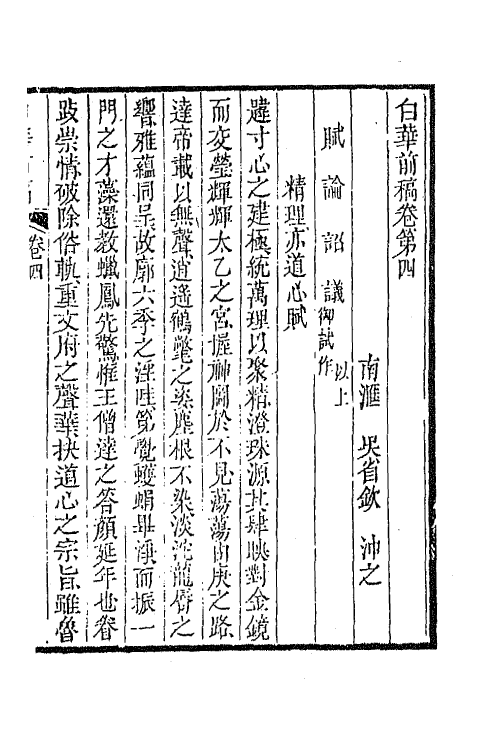 白華前稿卷第四
南滙 吳省欽 沖之
賦 論 詔 議 以上御試作
精理亦道心賦
建寸心之建極統萬理以聚精澄珠源其肆映對金鏡
而交瑩輝輝太乙之宮握神圖於不見蕩蕩由庚之路
達帝載以無聲逍遙鶴氅之裘塵根不染淡沱龍脣之
響雅蘊同呈故廓六季之淫哇第覺蠖蜎畢淨而振一
門之才藻還教蠟鳳先驚惟王僧達之答顏延年也眷
歧崇情破除俗軌重文府之聲華抉道心之宗旨雖魯
卷四